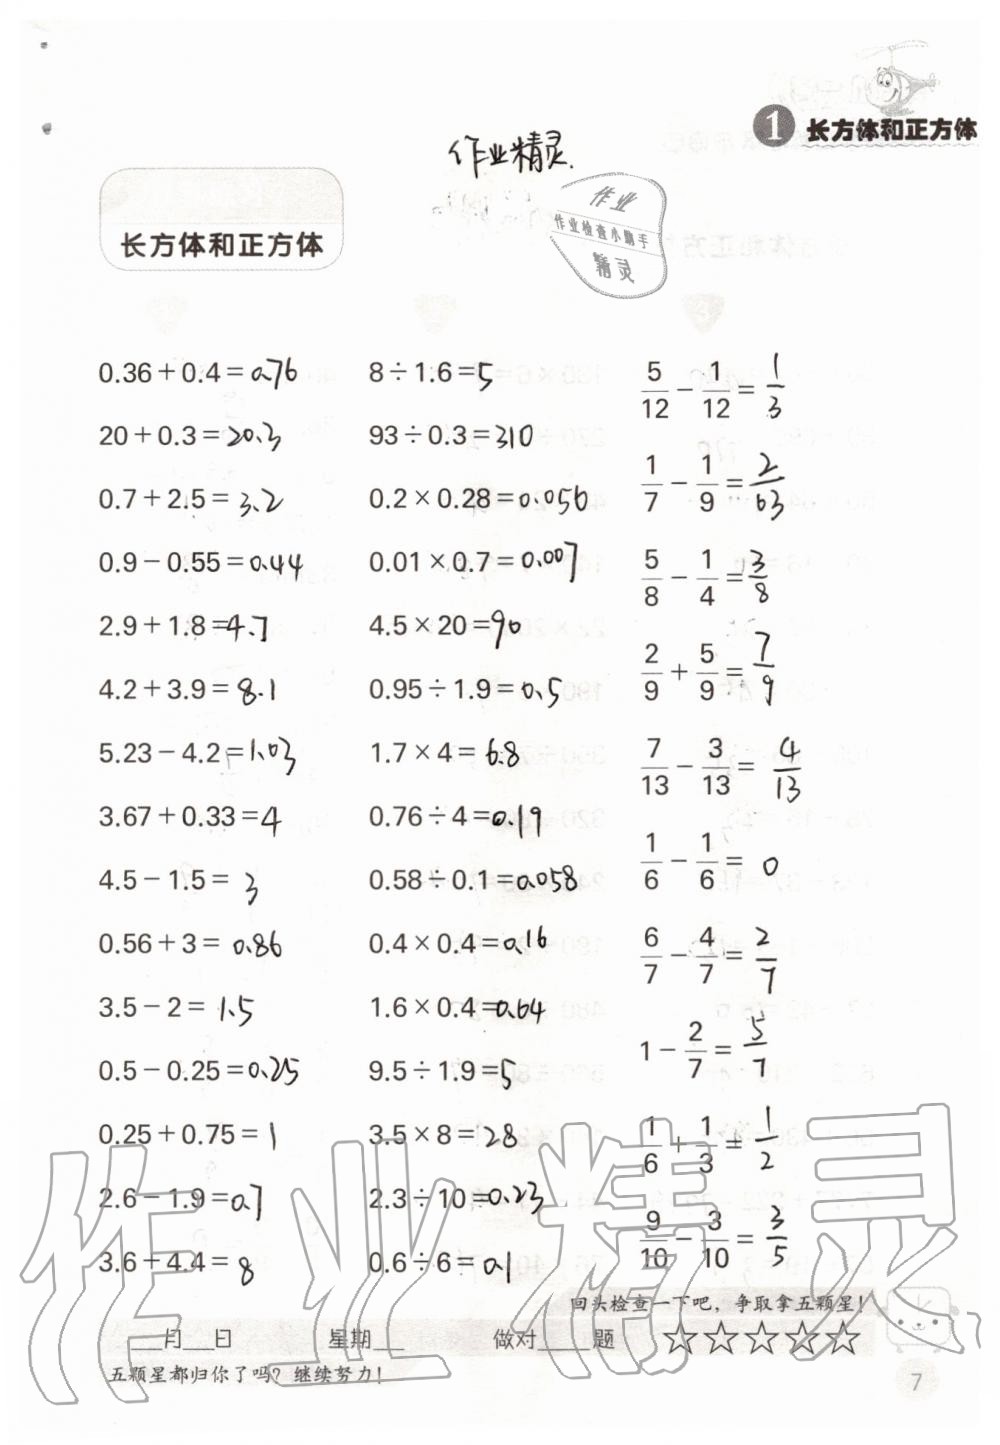 1 长方体和正方体
作业精灵.
作业
作业检查小助手
精灵
长方体和正方体
0.36+0.4=0.76
20+0.3=20.3
0.7+2.5=3.2
0.9-0.55=0.44
2.9+1.8=4.7
4.2+3.9=8.1
5.23-4.2=1.03
3.67+0.33=4
4.5-1.5=3
0.56+3=0.86
3.5-2=1.5
0.5-0.25=0.25
0.25+0.75=1
2.6-1.9=0.7
3.6+4.4=8
8÷1.6=5
93÷0.3=310
0.2×0.28=0.056
0.01×0.7=0.007
4.5×20=90
0.95÷1.9=0.5
1.7×4=6.8
0.76÷4=0.19
0.58÷0.1=0.058
0.4×0.4=0.16
1.6×0.4=0.64
9.5÷1.9=5
3.5×8=28
2.3÷10=0.23
0.6÷6=0.1
5/12-1/12=1/3
1/7-1/9=2/63
5/8-1/4=3/8
2/9+5/9=7/9
7/13-3/13=4/13
1/6-1/6=0
6/7-4/7=2/7
1-2/7=5/7
1/6+1/3=1/2
9/10-3/10=3/5
回头检查一下吧，争取拿五颗星！
___月___日 星期___ 做对____题 ☆☆☆☆☆
五颗星都归你了吗？继续努力！
7
作业精灵